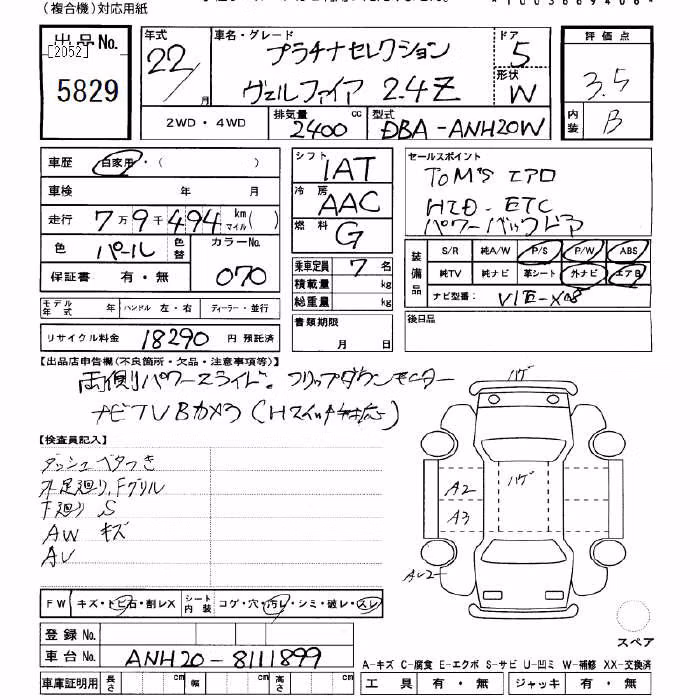 (複合機)対応用紙
出品No.
[2052]
5829
年式 22/ 月
車名・グレード プラチナセレクション
ヴェルファイア 2.4Z
ドア 5
形状 W
評価点 3.5
内装 B
2WD・4WD
排気量 2400 cc
型式 DBA-ANH20W
車歴 自家用・( )
車検 年 月
走行 7万9千494 km マイル( )
色 パール 色替
カラーNo. 070
保証書 有・無
シフト IAT
冷房 AAC
燃料 G
乗車定員 7名
積載量 kg
総重量 kg
セールスポイント
TOM'S エアロ
HID・ETC
パワーバックドア
装備品 S/R 純A/W P/S P/W ABS
純TV 純ナビ 革シート 外ナビ エアB
ナビ型番: VIE-X08
モデル年式 年 ハンドル 左・右 ディーラー・並行
リサイクル料金 18290 円 預託済
書類期限 月 日
後日品
【出品店申告欄(不良箇所・欠品・注意事項等)】
両側パワースライド。フリップダウンモニター
ナビTVBカメラ(Hスイッチ対応)
【検査員記入】
ダッシュベタつき
足廻り、Fグリル
下廻り S
AW キズ
AU
ハゲ
ハゲ
A2
A3
AU2
FW キズ・トビ石・割レX シート内装 コゲ・穴・汚レ・シミ・破レ・スレ
登録No.
車台No. ANH20-8111899
スペア
A-キズ C-腐食 E-エクボ S-サビ U-凹ミ W-補修 XX-交換済
車庫証明用 長さ cm 幅 cm 高さ cm
工具 有・無 ジャッキ 有・無